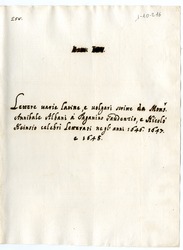 Lettere uarie latine, e uolgari scritte da Mons.r
Annibale Albani à Paganino Gaudenzio, e Nicolò
Heinsio celebri Letterati negl'anni 1646. 1647.
e 1648.